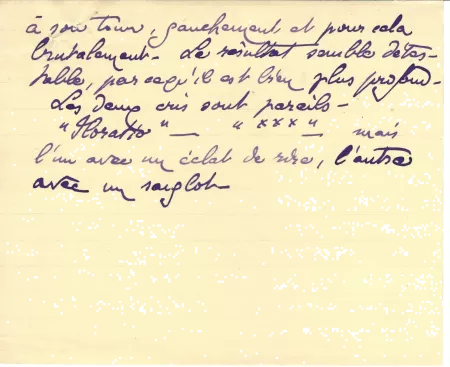 à son tour, gauchement et pour cela
brutalement - Le résultat semble détes-
table, parce qu'il est bien plus profond -
Les deux cris sont pareils -
" — " *** " — mais
l'un avec un éclat de rire, l'autre
avec un sanglot -